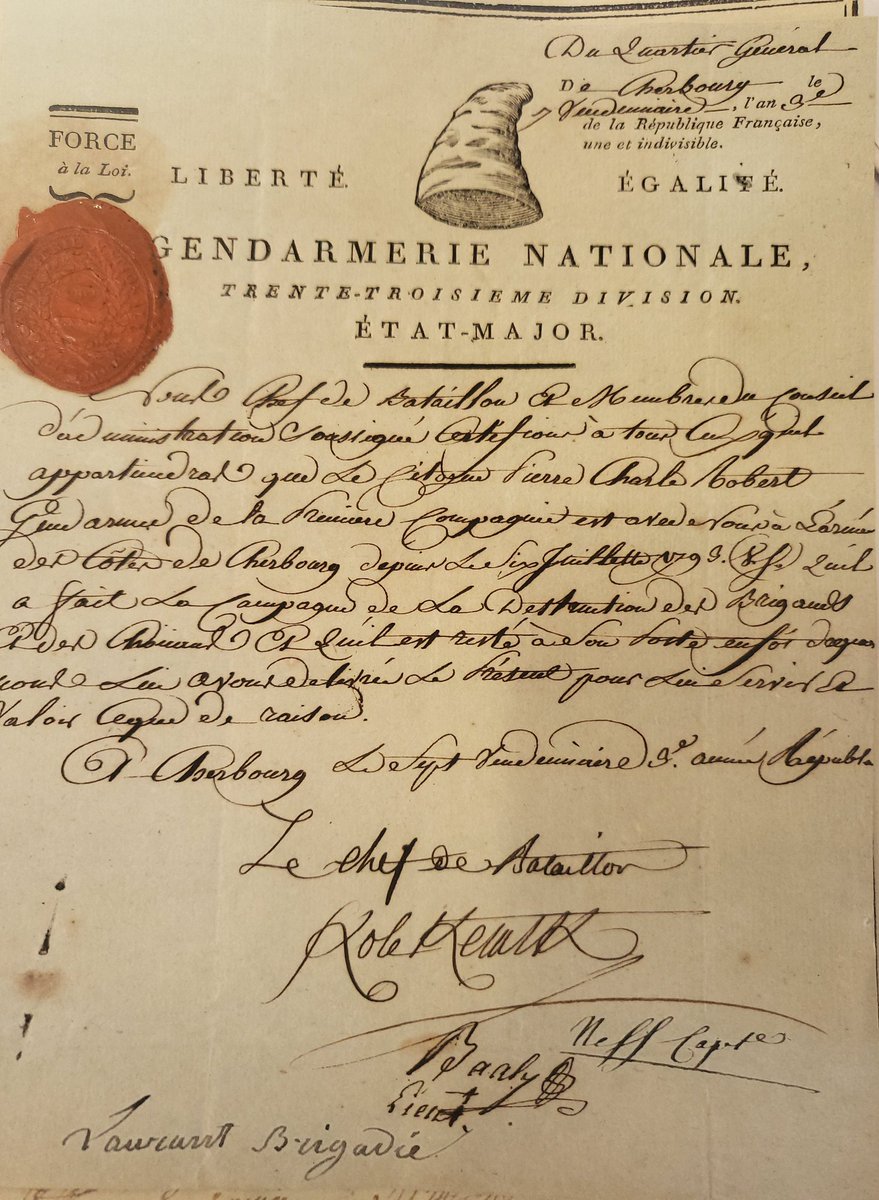 Du Quartier Général
De Cherbourg le
7 Vendemiaire, l'an 3e
de la République Française,
une et indivisible.
FORCE
à la Loi.
LIBERTÉ.
ÉGALITÉ.
GENDARMERIE NATIONALE,
TRENTE-TROISIEME DIVISION.
ÉTAT-MAJOR.
Nous Chef de Bataillon Et Membres du Conseil
d'administration Soussigné Certifions à tous Ceux qu'il
appartiendras que Le Citoyen Pierre Charle Robert
Gendarme de la Première Compagnie est avec Nous à L'armé
des Côtes de Cherbourg depuis Le Six Juillette 1793. Quil
a fait La Campagne de La Destruction des Brigands
Et des Chouans Et Quil est resté à Son Poste en foi
nous Lui avons délivrée Le Présent pour Lui Servir Et
Valoir Ceque de raison.
A Cherbourg Le Sept Vendemiaire 3e. année Républ
Le chef de Bataillon
Neff Capne
Bailly
Lient
Laurant Brigadié